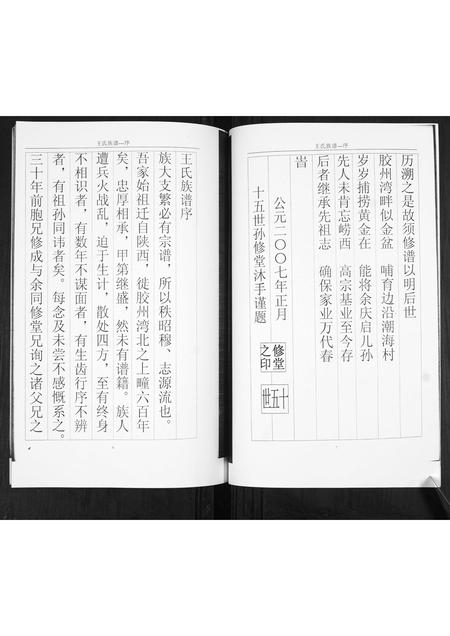 王氏族谱—序
历溯之是故须修谱以明后世
胶州湾畔似金盆 哺育边沿潮海村
岁岁捕捞黄金在 能将余庆启儿孙
先人未肯忘崂西 高宗基业至今存
后者继承先祖志 确保家业万代春
旹
公元二〇〇七年正月
十五世孙修堂沐手谨题
修堂之印
十五世
王氏族谱—序
王氏族谱序
族大支繁必有宗谱，所以秩昭穆、志源流也。
吾家始祖迁自陕西，徙胶州湾北之上疃六百年
矣，忠厚相承，甲第继盛，然未有谱籍。族人
遭兵火战乱，迫于生计，散处四方，至有终身
不相识者，有数年不谋面者，有生齿行序不辨
者，有祖孙同讳者矣。每念及未尝不感慨系之。
三十年前胞兄修成与余同修堂兄询之诸父兄之